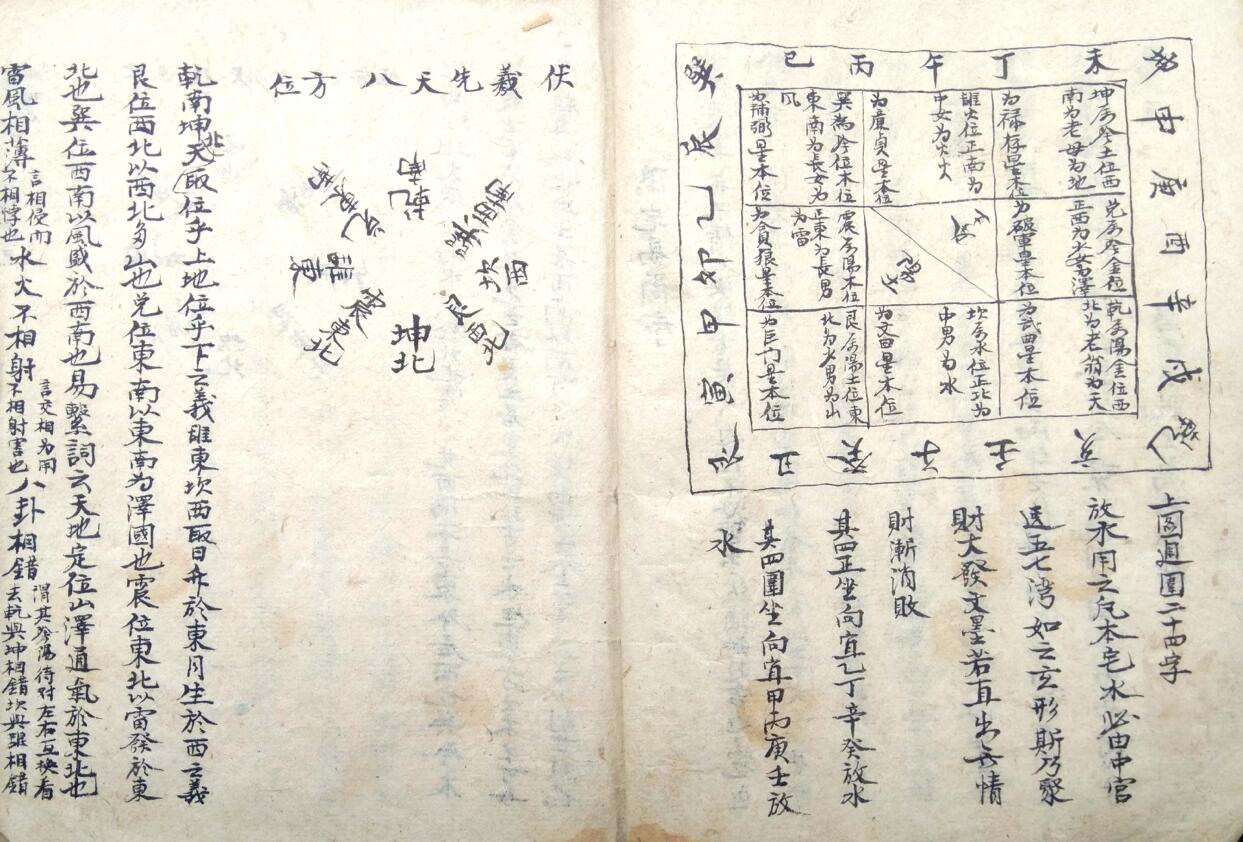 未
丁
午
丙
巳
申
庚
酉
辛
戌
辰
乙
卯
甲
寅
丑
癸
子
壬
亥
坤為陰土位西
南為老母為地
為祿存星本位
離火位正南為
中女為火
為廉貞星本位
巽為陰位木位
東南為長女為
風
為輔弼星本位
兌為陰金位
正西為少女為澤
為破軍星本位
陰
陽
震為陽木位
正東為長男
為雷
為貪狼星本位
乾為陽金位西
北為老翁為天
為武曲星本位
坎為水位正北為
中男為水
為文曲星本位
艮為陽土位東
北為少男為山
為巨門星本位
上圖週圍二十四字
放水用之凡本宅水必由中宮
透五七灣如之玄形斯乃聚
財大發文墨若直出無情
財漸消敗
其四正坐向宜乙丁辛癸放水
其四圍坐向宜甲丙庚壬放
水
伏羲先天八方位
乾南
兌東南
離東
震東北
巽西南
坎西
艮西北
坤北
乾南坤北天取位乎上地位乎下之義離東坎西取日升於東月生於西之義
艮位西北以西北多山也兌位東南以東南為澤國也震位東北以雷發於東
北也巽位西南以風盛於西南也易繫詞云天地定位山澤通氣於東北也
雷風相薄言相侵而不相悖也水火不相射言交相為用不相射害也八卦相錯謂其陰陽待對左右互換看去乾與坤相錯坎與離相錯